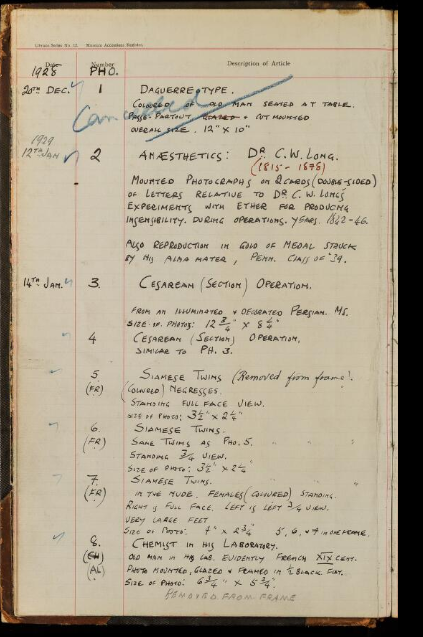 Library Series No. 12. Museum Accessions Register.
Date Number Description of Article
1928 PHO.
20th DEC. 1 DAGUERREOTYPE.
Cancelled
COLOURED OF OLD MAN SEATED AT TABLE.
PASSE PARTOUT, GLAZED + CUT MOUNTED
OVERALL SIZE. 12" X 10"
1929
12TH JAN 2 ANÆSTHETICS: DR. C.W. LONG.
(1815-1878)
MOUNTED PHOTOGRAPHS ON 2 CARDS (DOUBLE-SIDED)
OF LETTERS RELATIVE TO DR. C. LONG'S
EXPERIMENTS WITH ETHER FOR PRODUCING
INSENSIBILITY. DURING OPERATIONS. YEARS. 1842-46.
ALSO REPRODUCTION IN GOLD OF MEDAL STRUCK
BY HIS ALMA MATER, PENN. CLASS OF '39.
14TH JAN. 3. CESAREAN (SECTION) OPERATION.
FROM AN ILLUMINATED + DECORATED PERSIAN. MS.
SIZE OF PHOTO: 12 3/4" X 8 1/4"
4 CESAREAN (SECTION) OPERATION.
SIMILAR TO PH. 3.
5 SIAMESE TWINS (Removed from frame).
(FR) (COLOURED) NEGRESSES.
STANDING FULL FACE VIEW.
SIZE OF PHOTO: 3 1/2" X 2 1/4"
6. SIAMESE TWINS.
(FR) SAME TWINS AS PHO. 5. " " "
STANDING 3/4 VIEW.
SIZE OF PHOTO: 3 1/2" X 2 1/4"
7. SIAMESE TWINS.
(FR) IN THE NUDE. FEMALES (COLOURED) STANDING.
RIGHT IS FULL FACE. LEFT IS LEFT 3/4 VIEW.
VERY LARGE FEET
SIZE OF PHOTO: 4" X 2 3/4" 5, 6, + 7 IN ONE FRAME.
8. CHEMIST IN HIS LABORATORY.
(CH) OLD MAN IN HIS LAB. EVIDENTLY FRENCH XIX CENT.
(AL) PHOTO MOUNTED, GLAZED & FRAMED IN 1/2" BLACK FLAT.
SIZE OF PHOTO: 6 3/4" X 5 3/4".
REMOVED FROM FRAME